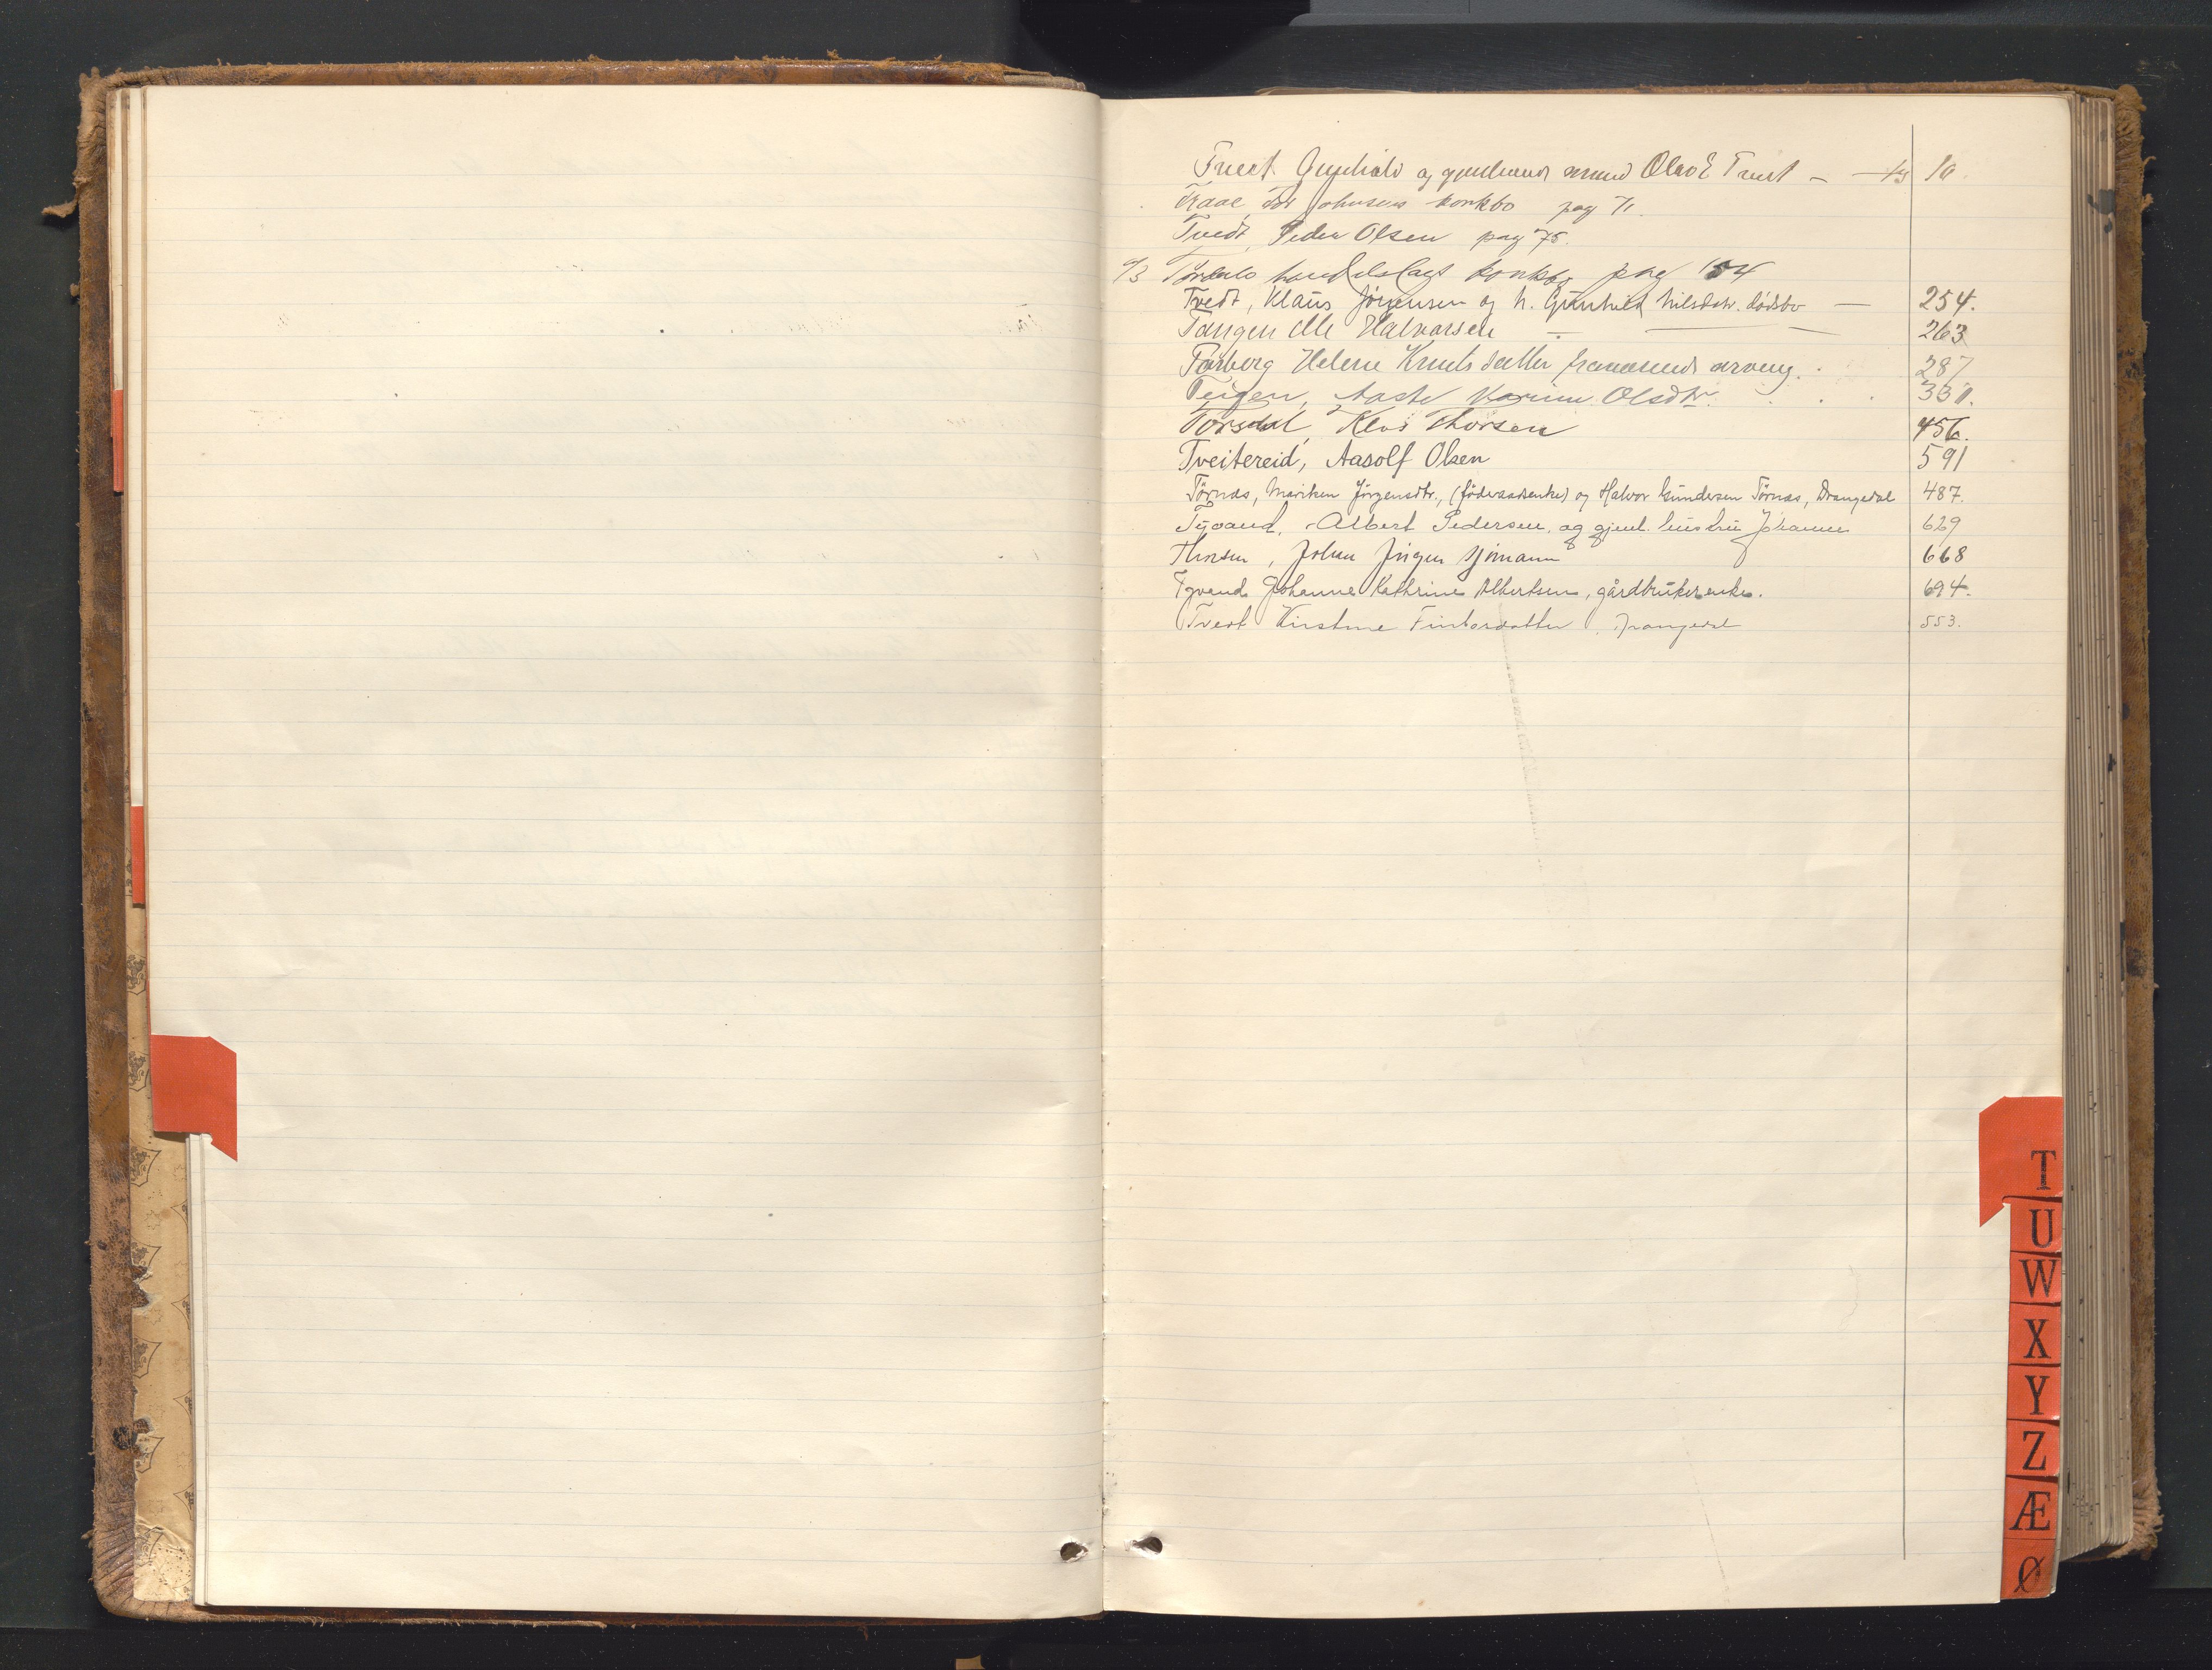 Tvedt Gunhild og gjenlevende mand Olav E Tvedt — 10.
Traae, Tor Johnsens konkbo pag 71.
Tvedt, Peder Olsen pag 75.
9/3 Tørdals handelslags konkbo pag 154
Tvedt, Klaus Jørgensen og h. Gunhild Nilsdtr. dødsbo — 254.
Tangen Halvorsen — 263
Torberg Helene Knutsdatter fraværende arving. 287
Teigen, Aaste Karine Olsdtr. 330.
Torsdal, Klas Thorsen 456.
Tveitereid, Aasolf Olsen 591
Törnæs, Mariken Jörgensdtr., (föderaadsenke) og Halvor Gundersen Törnæs, Drangedal 487.
Tyvand, Albert Pedersen og gjenl. hustru Johanne 629
Thorsen, Johan Jørgen sjømann 668
Tyvand Johanne Kathrine Albertsen, gårdbrukerenke. 694.
Tvedt Kirstine Finkersdatter, Drangedal 553.
T
U
W
X
Y
Z
Æ
Ø